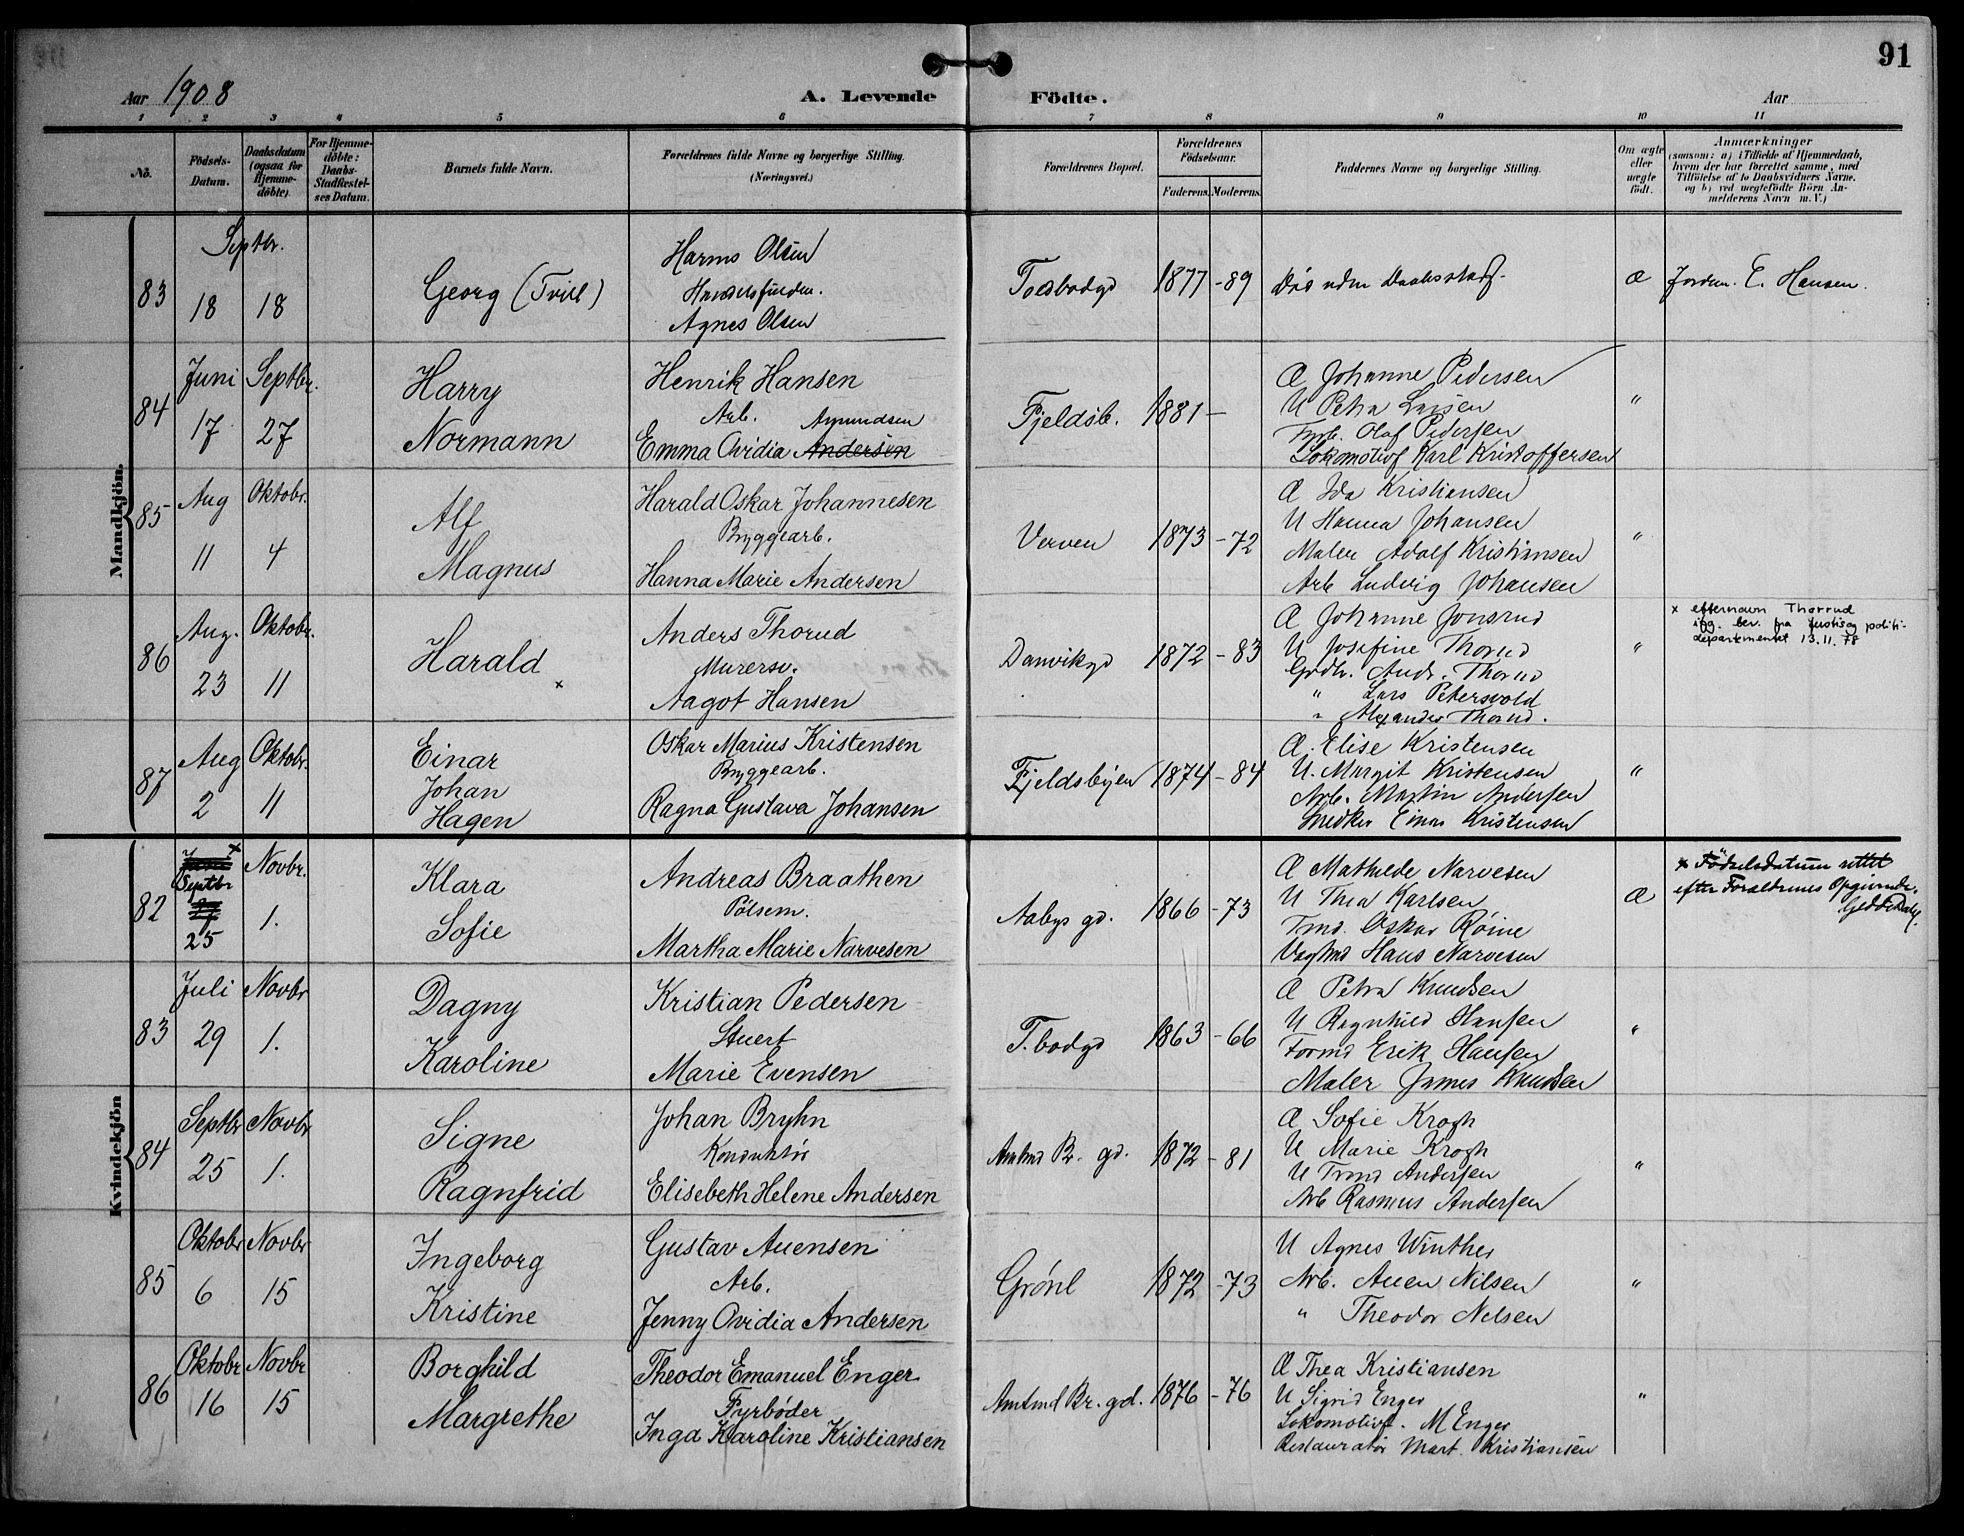 91
Aar 1908
A. Levende Födte.
Aar
1 2 3 4 5 6 7 8 9 10 11
No.
Födsels-
Datum.
Daabsdatum
(ogsaa for
Hjemme-
döbte).
For Hjemme-
döbte:
Daabs-
Stadfæstel-
ses Datum.
Barnets fulde Navn.
Forældrenes fulde Navne og borgerlige Stilling.
(Næringsvei.)
Forældrenes Bopæl.
Forældrenes
Födselsaar.
Faderens. Moderens.
Faddernes Navne og borgerlige Stilling.
Om ægte
eller
uægte
födt.
Anmærkninger
(saasom: a) i Tilfælde af Hjemmedaab,
hvem der har forrettet samme, med
Tilföielse af to Daabsvidners Navne.
og b) ved uægtefödte Börn An-
melderens Navn m.V.)
Mandkjön.
83
Septbr.
18 18
Georg (Tvill)
Harms Olsen
Agnes Olsen
Toldbodgd 1877 - 89
Död uden Daabsstadf.
Æ
Jordm. E. Hansen.
84
Juni Septbr.
17 27
Harry
Normann
Henrik Hansen
Arb. Amundsen
Emma Ovidia Andersen
Fjeldsb. 1881 -
Æ Johanne Pedersen
U Petra Larsen
Fyrb. Olaf Pedersen
Lokomotivf Karl Kristoffersen
"
85
Aug Oktobr.
11 4
Alf
Magnus
Harald Oskar Johannesen
Byggearb.
Hanna Marie Andersen
Verven 1873 - 72
Æ Ida Kristiansen
U Hanna Johansen
Maler Adolf Kristiansen
Arb Ludvig Johansen
"
86
Aug. Oktobr.
23 11
Harald x
Anders Thorud
Murersv.
Aagot Hansen
Danvikgd 1872 - 83
Æ Johanne Jonsrud
U Josefine Thorud
Gdbr. Andr. Thorud
" Lars Petersvold
" Alexander Thorud.
"
x efternavn Thorrud
ifg. bev. fra Justis og politi-
departementet 13.11.78
87
Aug Oktobr.
2 11
Einar
Johan
Hagen
Oskar Marius Kristensen
Byggearb.
Ragna Gustava Johansen
Fjeldsbyen 1874 - 84
Æ. Elise Kristensen
U. Margit Kristensen
Arb. Martin Andersen
Snedker Einar Kristensen
"
Kvindekjön
82
x
Novbr.
Septbr
25 1.
Klara
Sofie
Andreas Braathen
Pölsem.
Martha Marie Narvesen
Aabys gd. 1866 - 73
Æ Mathilde Narvesen
U Thea Karlsen
Trmd. Oskar Röine
Vagtmd Hans Narvesen
Æ
x Födselsdatum rettet
efter Forældrenes Opgivende.
83
Juli Novbr
29 1.
Dagny
Karoline
Kristian Pedersen
Stuert
Marie Evensen
T.bodgd 1863 - 66
Æ Petra Knudsen
U Ragnhild Hansen
Formd Erik Hansen
Maler James Knudsen
"
84
Septbr Novbr
25 1.
Signe
Ragnfrid
Johan Bryhn
Konduktör
Elisebeth Helene Andersen
Amtmd Br. gd. 1872 - 81
Æ Sofie Krogh
U Marie Krogh
U Trond Andersen
Arb Rasmus Andersen
"
85
Oktobr Novbr
6 15
Ingeborg
Kristine
Gustav Auensen
Arb.
Jenny Ovidia Andersen
Grönl 1872 - 73
U Agnes Winther
Arb. Auen Nilsen
" Theodor Nelsen
"
86
Oktobr Novbr
16 15
Borghild
Margrethe
Theodor Emanuel Enger
Fyrböder
Inga Karoline Kristiansen
Amtmd Br. gd. 1876 - 76
Æ Thea Kristiansen
U Sigrid Enger
Lokomotivf. M Enger
Restauratör Mart. Kristiansen
"